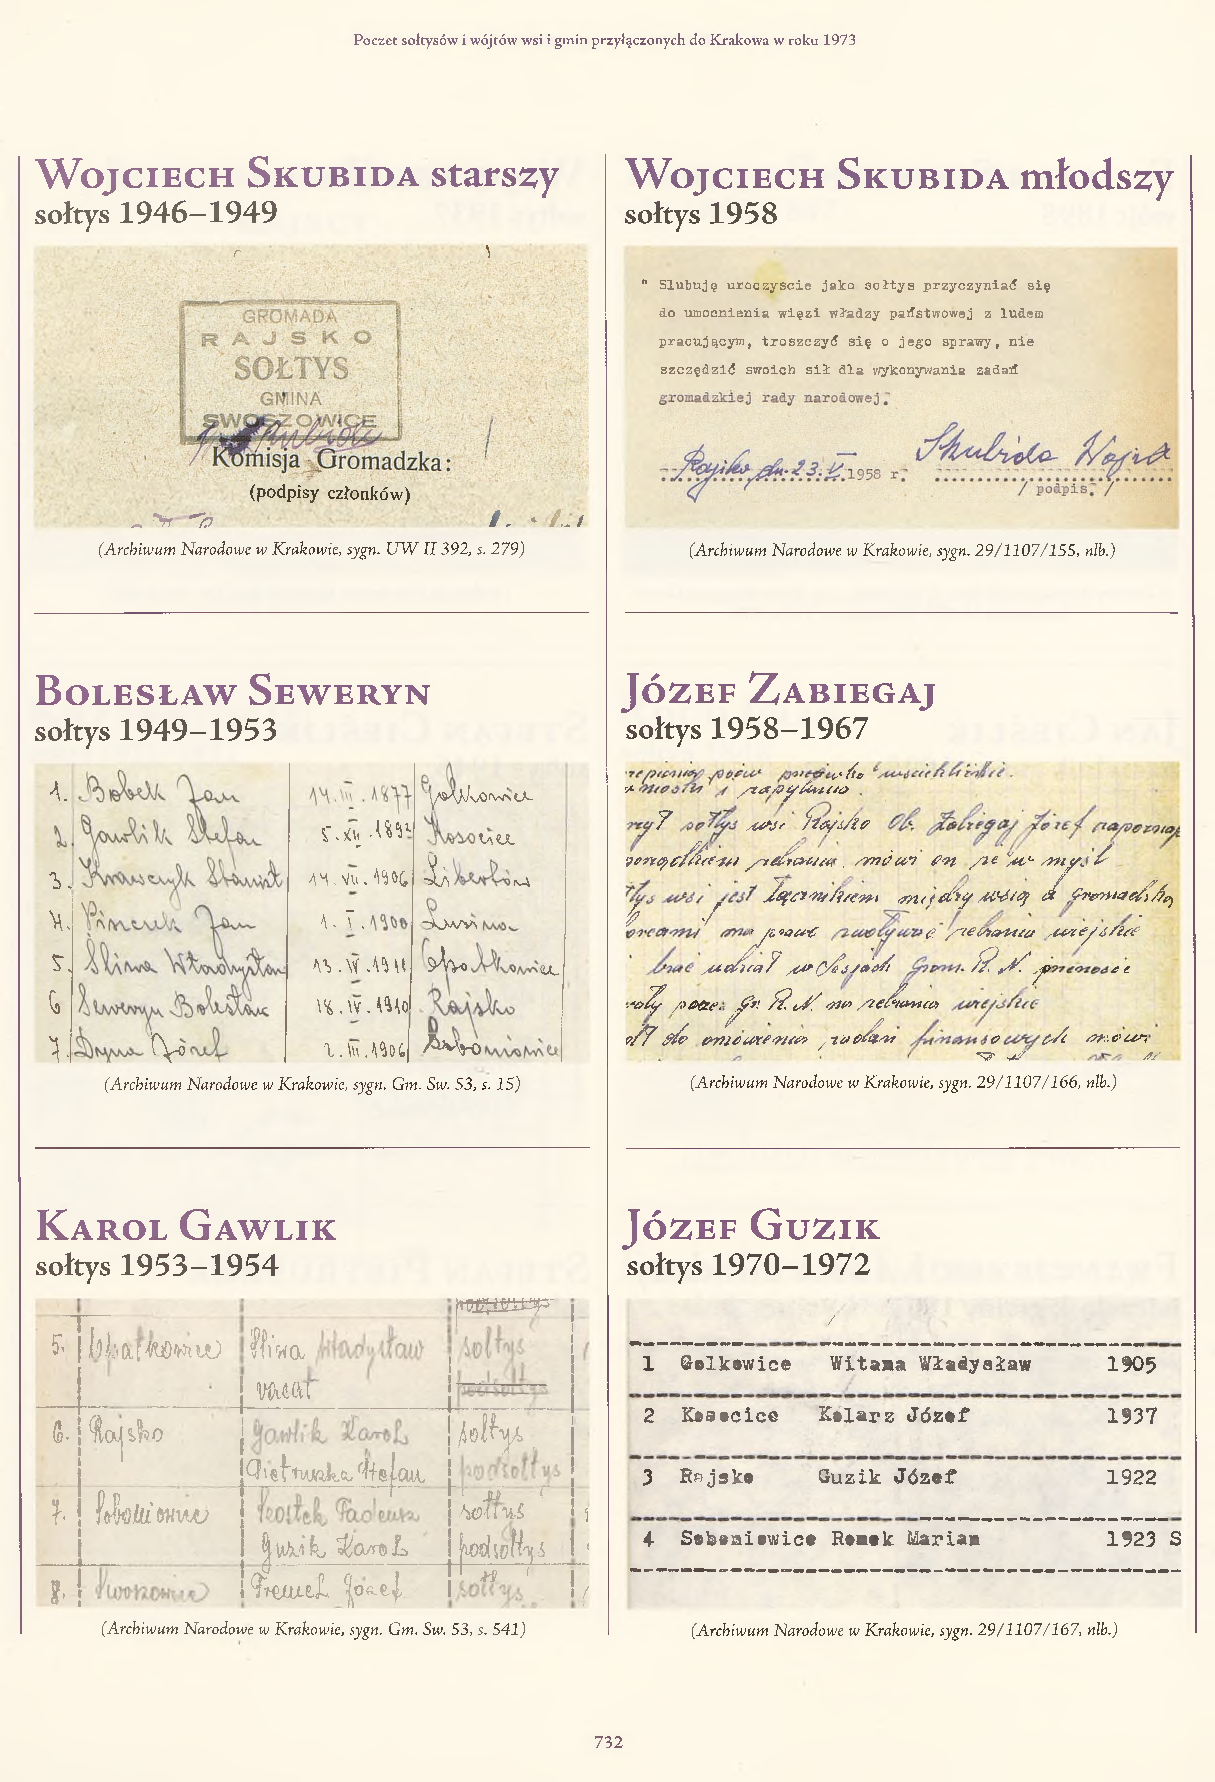 Poczet sołtysów i wójtów wsi i gmin przyłączonych do Krakowa w roku 1973
Wojciech Skubida starszy
sołtys 1946–1949
GROMADA
RAJSKO
SOŁTYS
GMINA
SWOSZOWICE
Komisja Gromadzka:
(podpisy członków)
(Archiwum Narodowe w Krakowie, sygn. UW II 392, s. 279)
Bolesław Seweryn
sołtys 1949–1953
1. Bobek Jan 14.III.1877 Golkowice
2. Gawlik Stefan 5.XII.1892 Kosocice
3. Krawczyk Stanisł 14.VII.1906 Libertów
4. Pinczek Jan 1.I.1900 Lusina
5. Śliwa Władysław Opatkowice
6 Seweryn Bolesław 18.IV.1910 Rajsko
7. Dyna Józef 2.III.1906
(Archiwum Narodowe w Krakowie, sygn. Gm. Sw. 53, s. 15)
Karol Gawlik
sołtys 1953–1954
5. Opatkowice Śliwa Władysław sołtys
vacat podsołtys
6. Rajsko Gawlik Karol sołtys
Pietruszka Stefan podsołtys
7. Soboniowice Kostek Tadeusz sołtys
Guzik Karol podsołtys
8. Józef sołtys
(Archiwum Narodowe w Krakowie, sygn. Gm. Sw. 53, s. 541)
Wojciech Skubida młodszy
sołtys 1958
" Slubuję uroczyscie jako sołtys przyczyniać się
do umocnienia więzi władzy państwowej z ludem
pracującym, troszczyć się o jego sprawy, nie
szczędzić swoich sił dla wykonywania zadań
gromadzkiej rady narodowej."
Skubida Wojci
Rajsko dn. 23.V.1958 r.
/ podpis. /
(Archiwum Narodowe w Krakowie, sygn. 29/1107/155, nlb.)
Józef Zabiegaj
sołtys 1958–1967
wnioski i zapytania.
sołtys wsi Rajsko Ob. Zabiegaj Józef zapoznaj
porządkiem zebrania. mówi on że w myśl
tys wsi jest łącznikiem między wsią a gromadzką
ma prawo zwoływać zebrania wiejskie
brać udział w Sesjach Grom. R. N. przenosić
przez Gr. R. N. na zebrania wiejskie
do omówienia zadań finansowych mówi
(Archiwum Narodowe w Krakowie, sygn. 29/1107/166, nlb.)
Józef Guzik
sołtys 1970–1972
1 Golkowice Witama Władysław 1905
2 Kosocice Kolarz Józef 1937
3 Rajsko Guzik Józef 1922
4 Soboniowice Romek Marian 1923 S
(Archiwum Narodowe w Krakowie, sygn. 29/1107/167, nlb.)
732